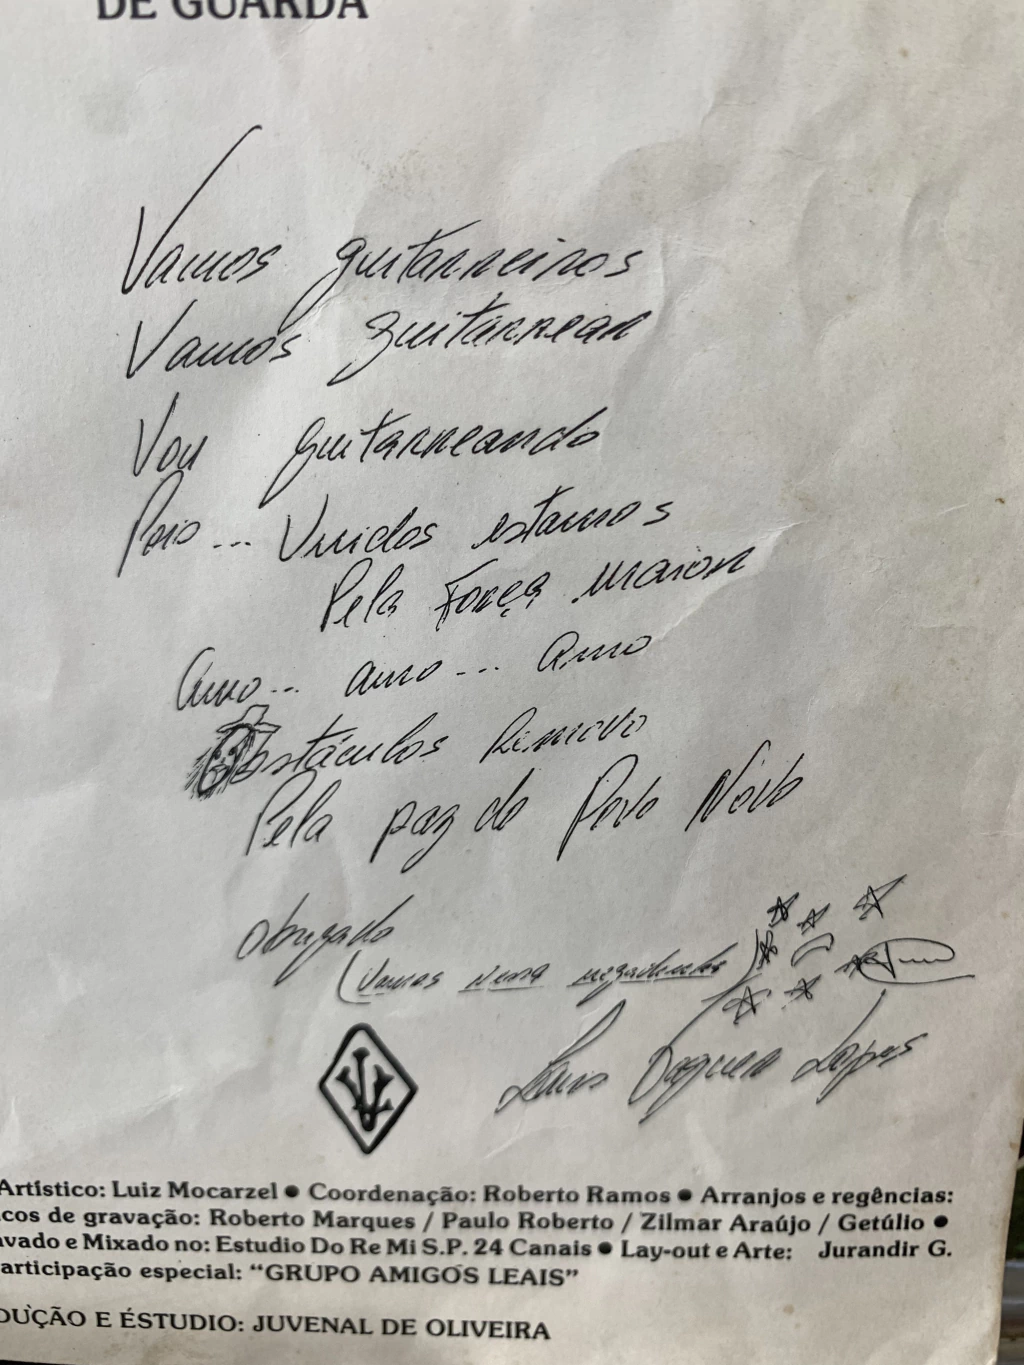 DE GUARDA
Vamos guitarreiros
Vamos guitarrear
Vou guitarreando
Pois... Unidos estamos
Pela Força maior
Amo... amo... Amo
Obstáculos Removo
Pela paz do Povo Novo
Obrigado
(Vamos nessa
Luis Vaguer Lopes
Artístico: Luiz Mocarzel ● Coordenação: Roberto Ramos ● Arranjos e regências:
cos de gravação: Roberto Marques / Paulo Roberto / Zilmar Araújo / Getúlio ●
avado e Mixado no: Estudio Do Re Mi S.P. 24 Canais ● Lay-out e Arte: Jurandir G.
articipação especial: “GRUPO AMIGOS LEAIS”
DUÇÃO E ÉSTUDIO: JUVENAL DE OLIVEIRA